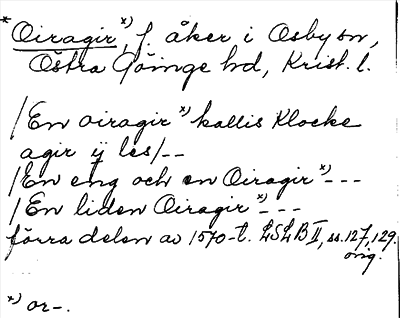 *Oiragir*), f. åker i Osby sn,
Östra Göinge hd, Krist. l.
/En oiragir*) kallis Klocke
agir ij les/--
/En eng och en Oiragir*)---
/En liden Oiragir*)---
förra delen av 1570-t. LSLB II, ss. 127, 129.
orig.
*) or-.